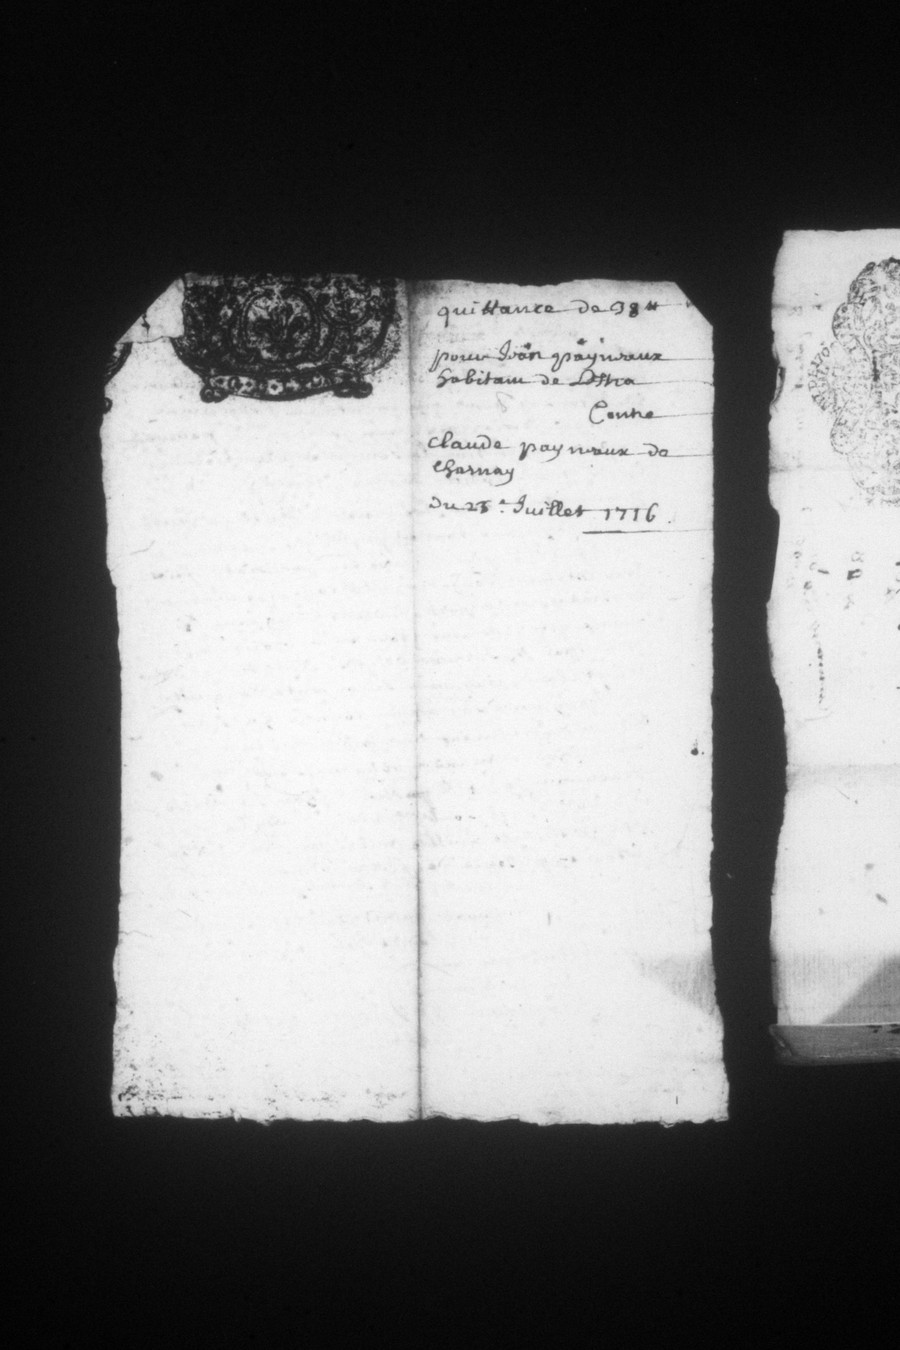 quittance de 98 ₶
pour Jean payneaux
habitant de
Contre
claude payneaux de
charnay
du 25e. Juillet 1716